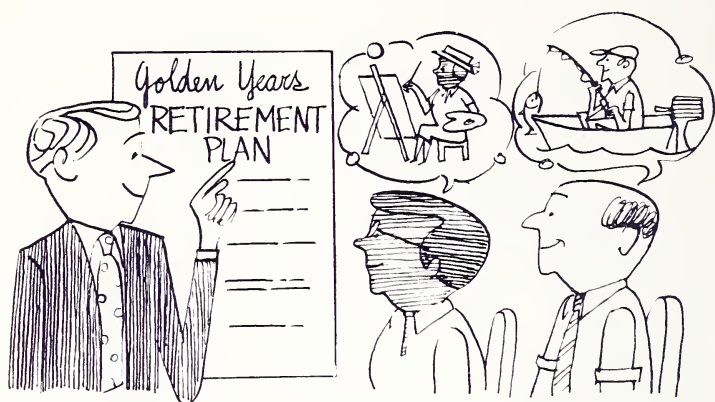 Golden Years
RETIREMENT
PLAN